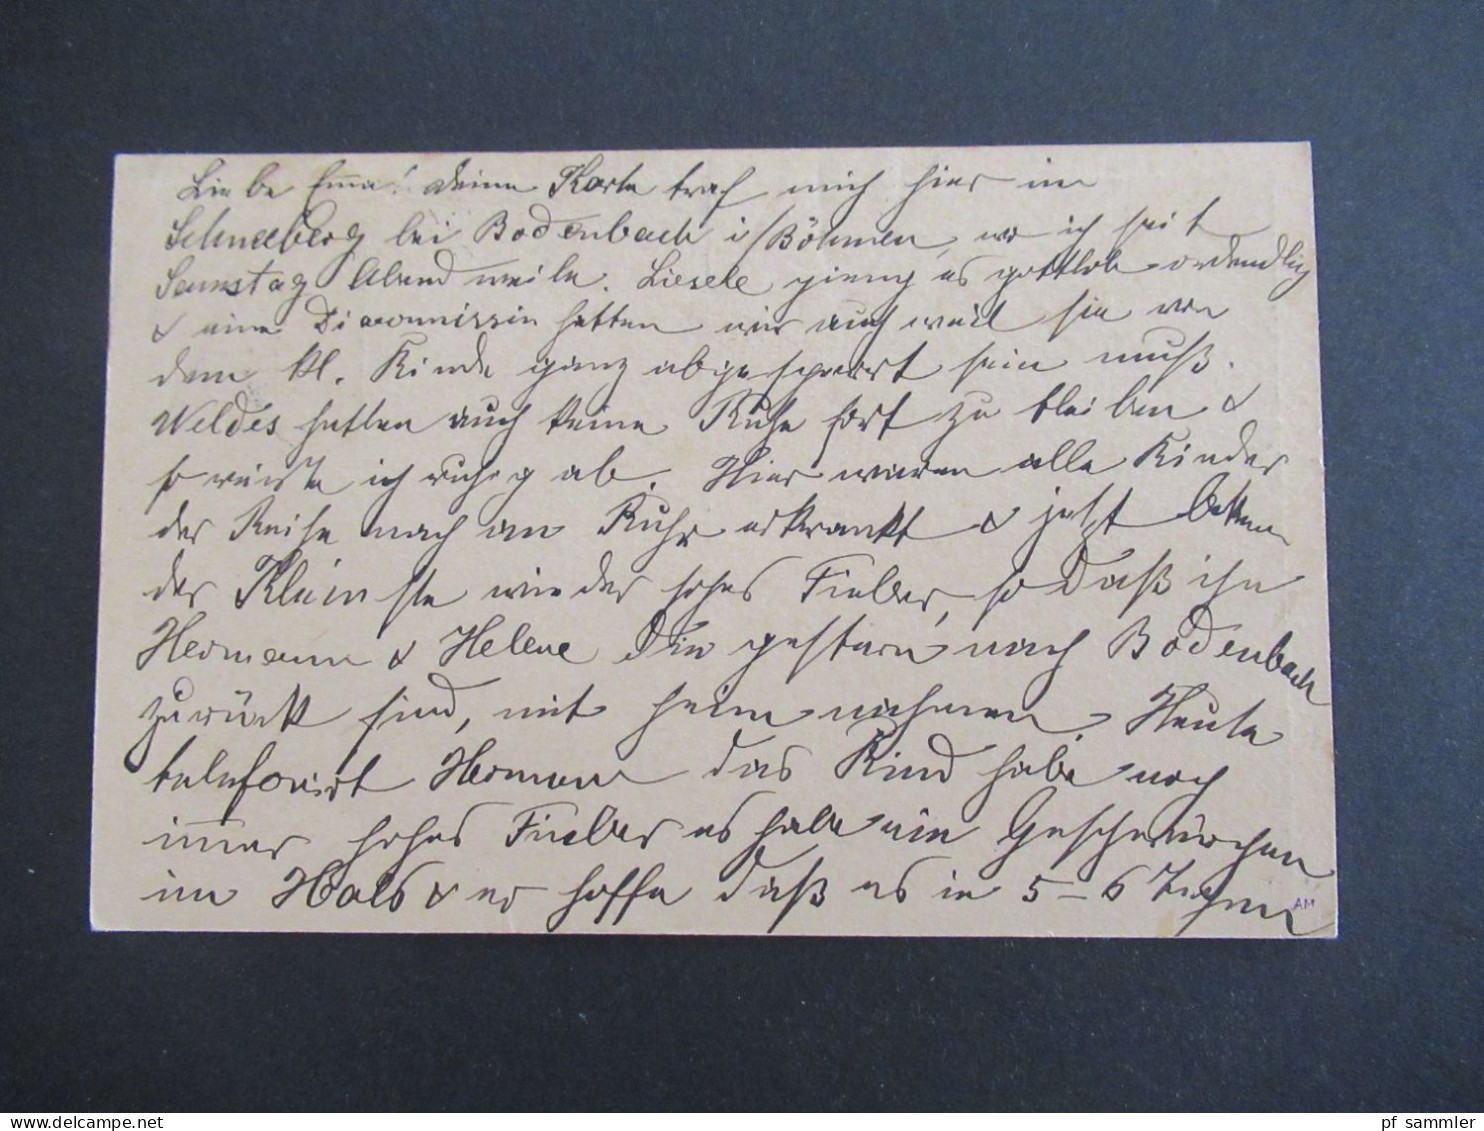 Liebe Emma! Deine Karte traf mich hier in
Schneeberg bei Bodenbach i/Böhmen, wo ich seit
Samstag Abend weile. Liesele gieng es gottlob ordendlig
& eine Diaconnissin hatten wir auch weil sie von
dem kl. Kinde ganz abgesperrt sein muß.
hatten auch keine Ruhe fort zu bleiben &
so reiste ich ruhig ab. Hier waren alle Kinder
der Reihe nach an Ruhr erkrankt & jetzt
der Kleinste wieder hohes Fieber, so daß ihn
Hermann & Helene die gestern nach Bodenbach
zurück sind, mit heim nahmen. Heute
telefonirt Hermann das Kind habe noch
immer hohes Fieber es habe ein Geschwürchen
im Hals & er hoffe daß es in 5-6 Tagen
AM
www.delcampe.net
pf_sammler